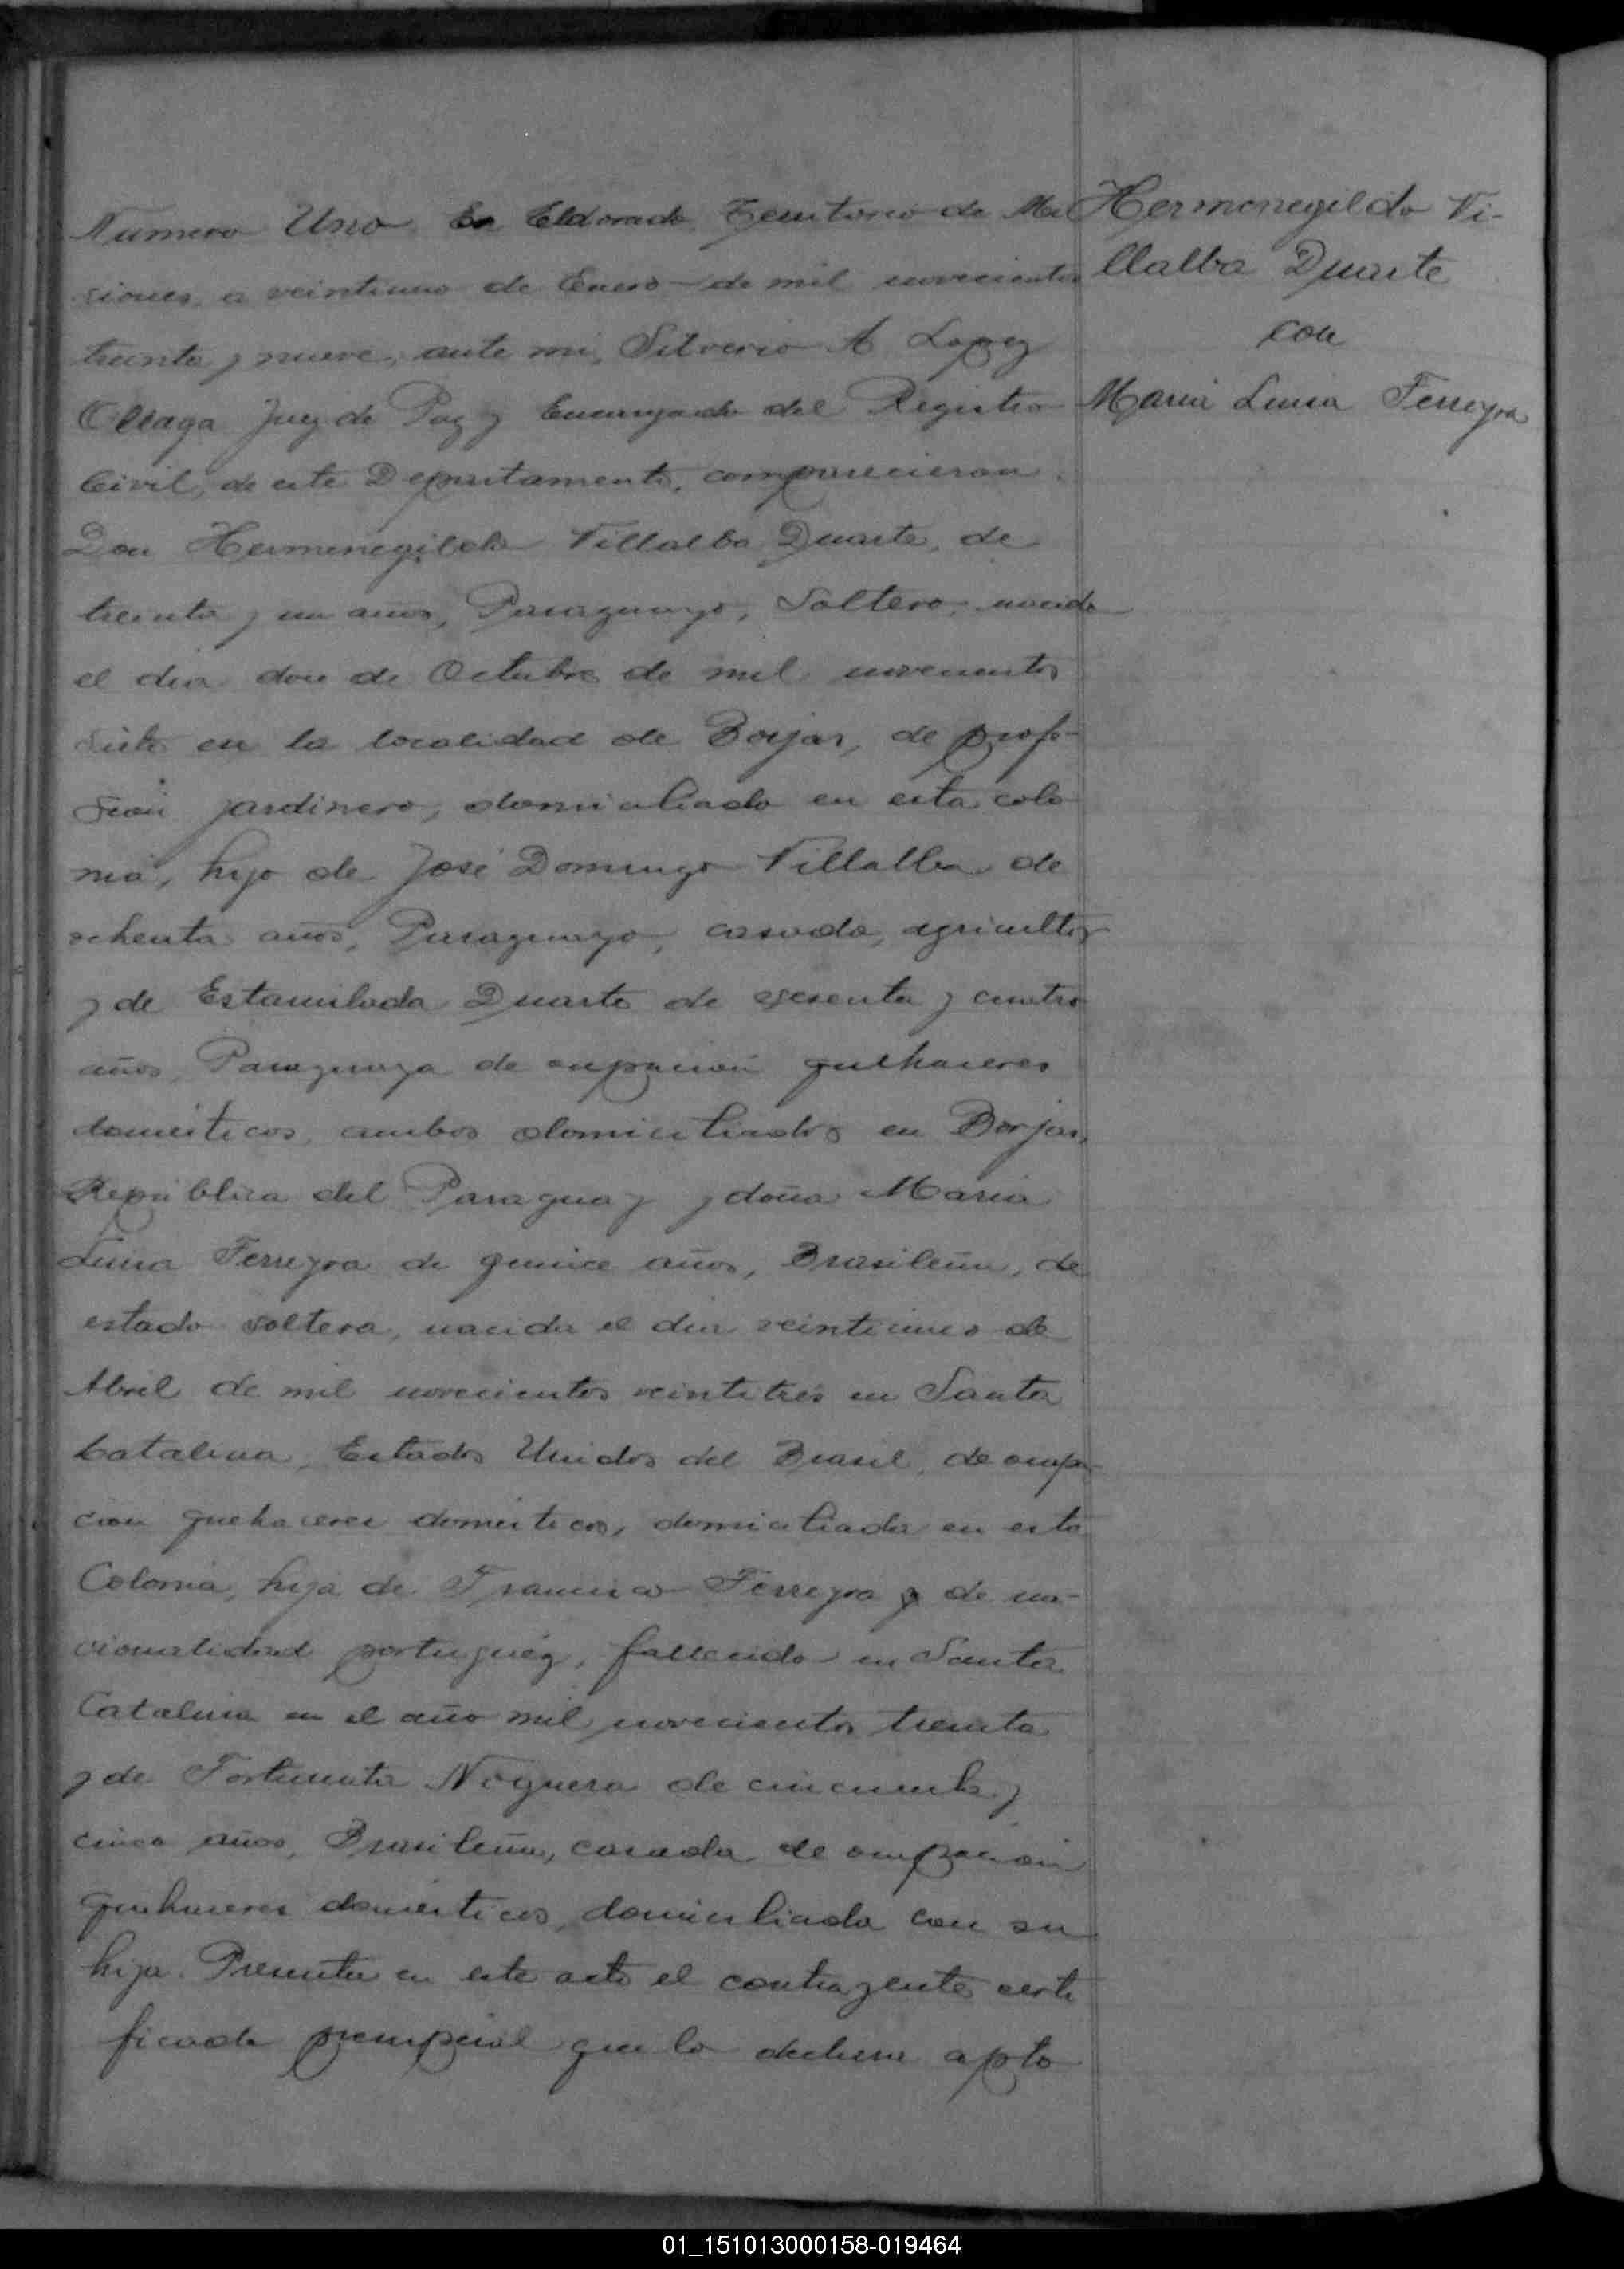 Numero Uno En Eldorado Territorio de Mi
siones, a veintiuno de Enero de mil novecientos
treinta y nueve, ante mi, Silverio A Lopez
Olaga Juez de Paz y Encargado del Registro
Civil, de este Departamento, comparecieron
Don Hermenegildo Villalba Duarte, de
treinta y un años, Paraguayo, Soltero, nacido
el dia doce de Octubre de mil novecientos
siete en la localidad de Borjas, de profe-
sión jardinero, domiciliado en esta colo
nia, hijo de José Domingo Villalba de
ochenta años, Paraguayo, casado, agricultor
y de Estanilada Duarte de sesenta y cuatro
años, Paraguaya de ocupación quehaceres
domésticos, ambos domiciliados en Borjas,
República del Paraguay y doña Maria
Luisa Ferreyra de quince años, Brasileña, de
estado soltera, nacida el dia veinticinco de
Abril de mil novecientos veintitrés en Santa
Catalina, Estados Unidos del Brasil, de ocupa-
cion quehaceres domésticos, domiciliada en esta
Colonia, hija de Francisco Ferreyra y de na-
cionalidad portuguéz, fallecido en Santa
Catalina en el año mil novecientos treinta
y de Fortunata Noguera de cincuenta y
cinco años, Brasileña, casada de ocupación
quehaceres domésticos, domiciliada con su
hija. Presenta en este acto el contragente certi
ficado prenupcial que lo declara apto
Hermenegildo Vi-
llalba Duarte
con
Maria Luisa Ferreyra
01_151013000158-019464